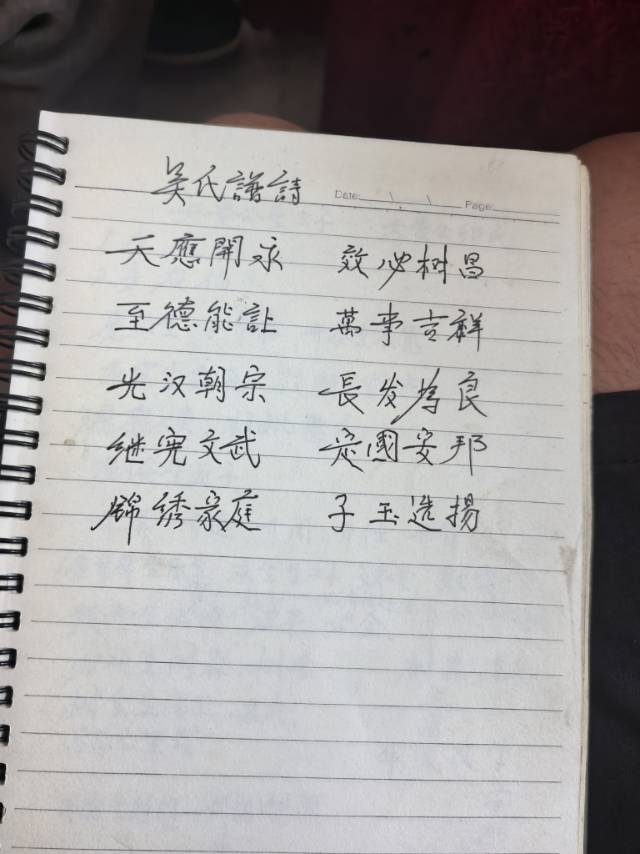 吴氏譜詩 Date: Page:
天應開永 效必树昌
至德能訨 萬事吉祥
光汉朝宗 長发為良
继宪文武 定國安邦
錦綉家庭 子玉选揚